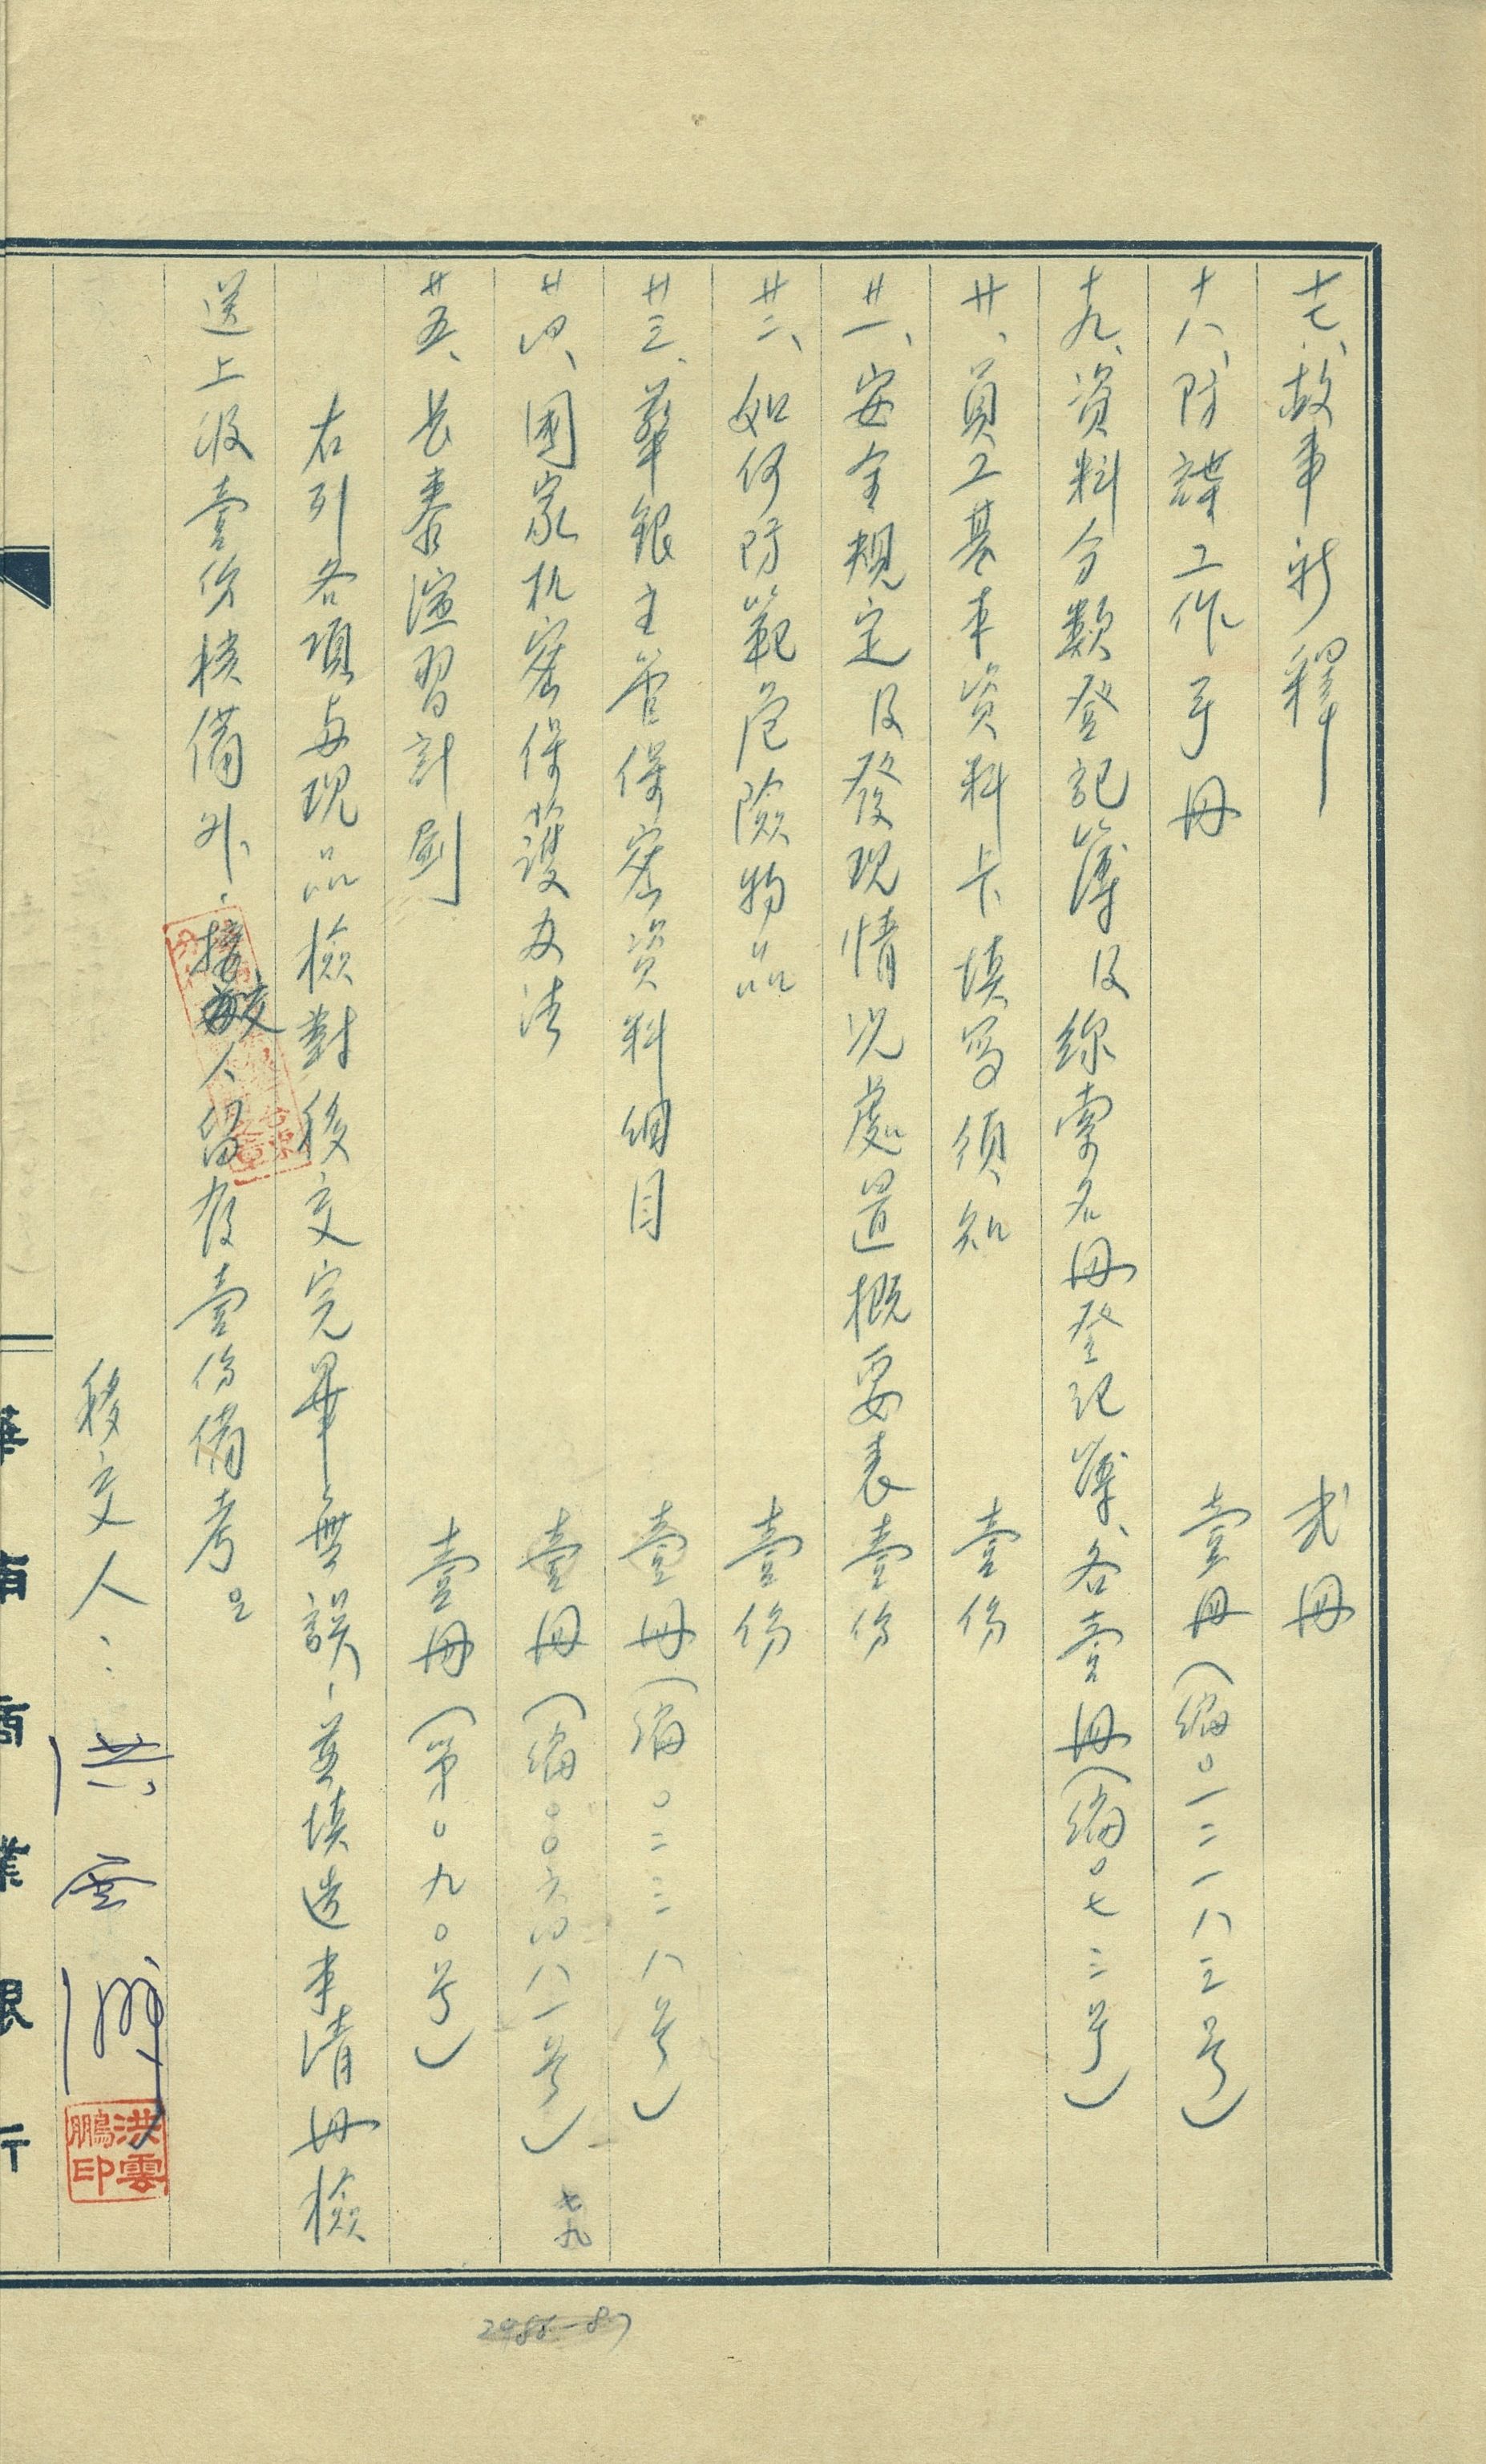 十七、故事新釋　弍冊
十八、防諜工作手冊　壹冊（編０一二一八三号）
十九、資料分類登記簿及線索名冊登記簿、各壹冊（編０七三号）
廿、員工基本資料卡填写須知　壹份
廿一、安全規定及發現情況處置概要表壹份
廿二、如何防範危險物品　壹份
廿三、華銀主管保密資料細目　壹冊（編０二三八号）
廿四、國家机密保護办法　壹冊（編００六四八一号）
七九
廿五、長泰演習計劃　壹冊（第０九０号）
右列各項与現品檢對後交完畢無誤、並填造本清冊檢
送上級壹份核備外、接交人留存壹份備考。
移交人：洪雲鵬
洪雲鵬印
華南商業銀行
2986-87